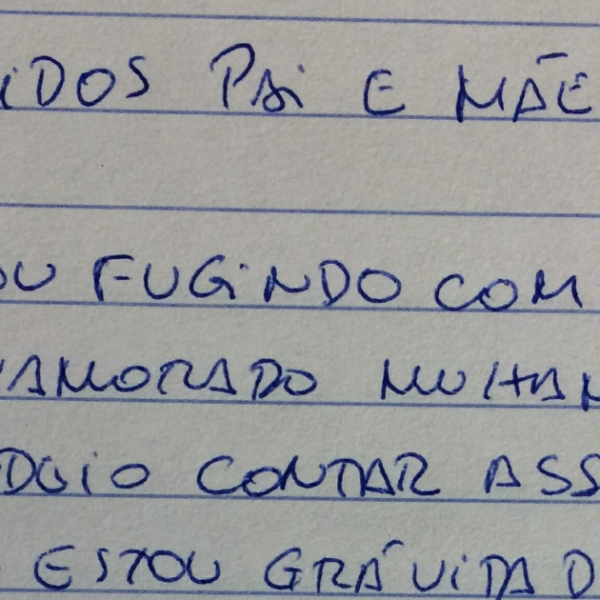 IDOS PAI E MÃE
OU FUGINDO COM
NAMORADO MUHAM
ODEIO CONTAR ASS
ESTOU GRÁVIDA D